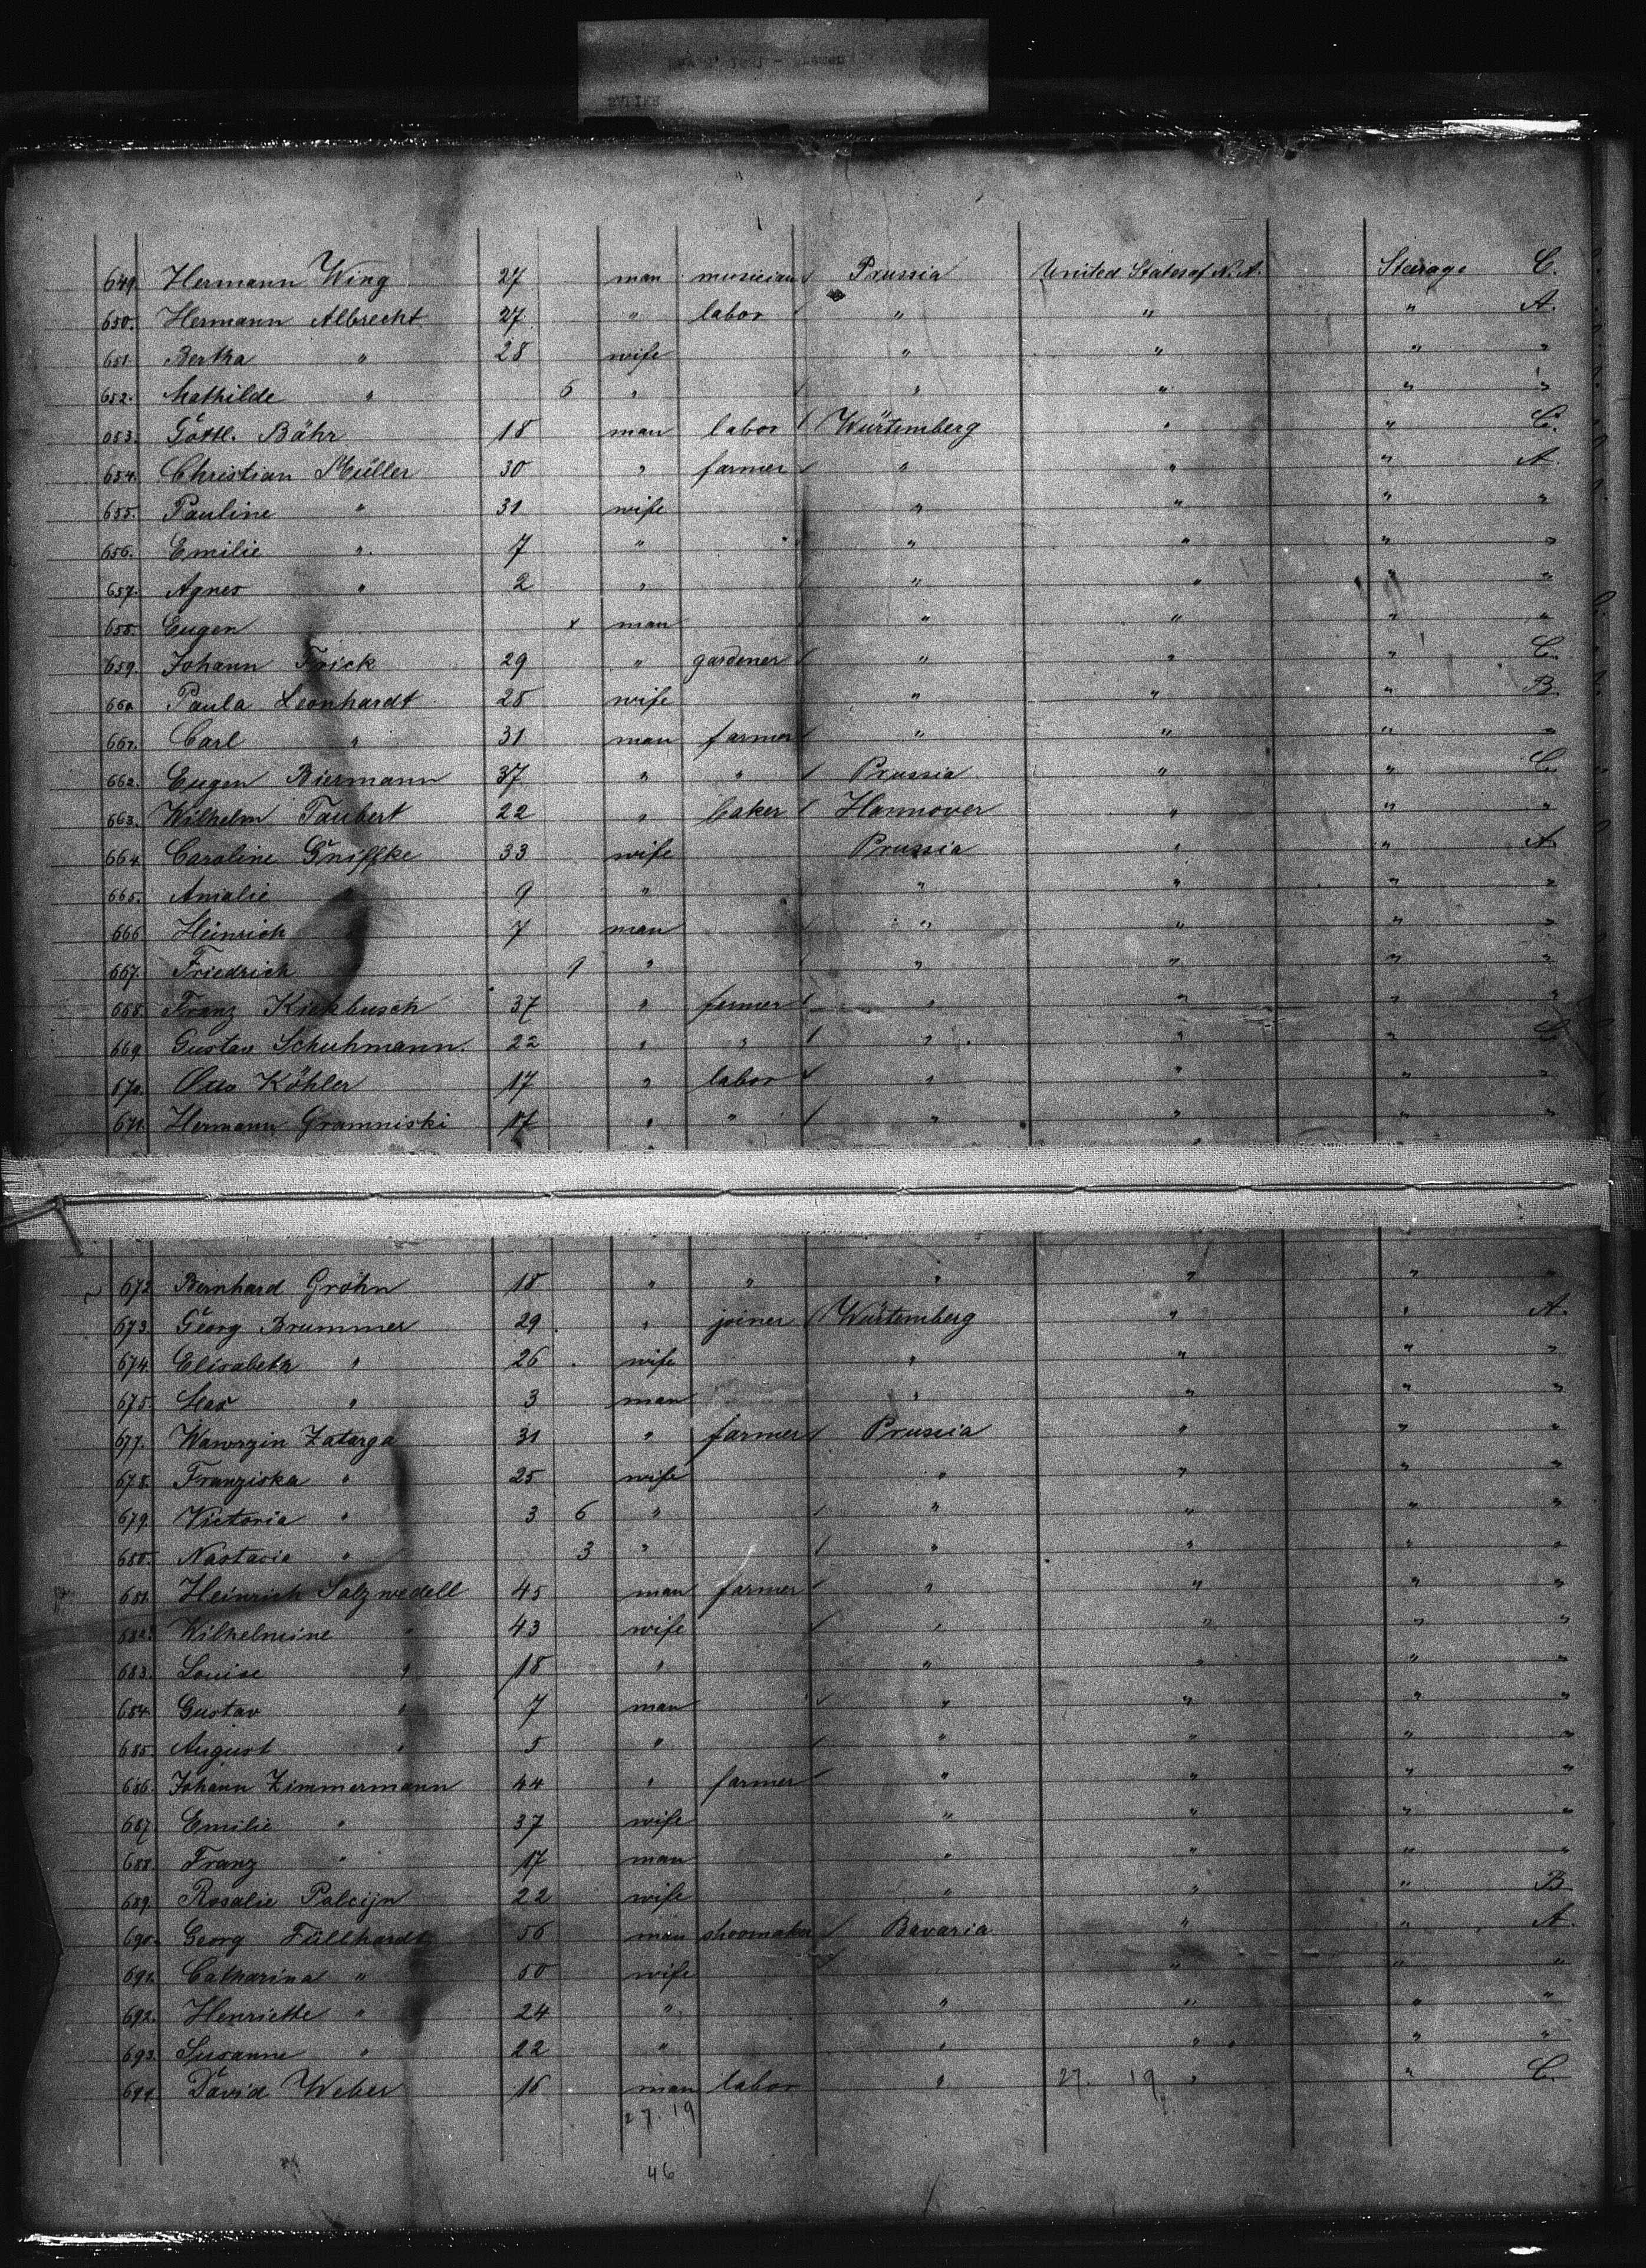 649. Hermann Wing 27 man musician Prussia United States of N. A. Steerage C.
650. Hermann Albrecht 27 " labor " " " A.
651. Bertha " 28 wife " " " "
652. Mathilde " 6 " " " " "
653. Gottl. Bähr 18 man labor Würtemberg " " C.
654. Christian Müller 30 " farmer " " " A.
655. Pauline " 31 wife " " " "
656. Emilie " 7 " " " " "
657. Agnes " 2 " " " " "
658. Eugen x man " " " "
659. Johann Frick 29 " gardener " " " C.
660. Paula Leonhardt 28 wife " " " B.
661. Carl " 31 man farmer " " " "
662. Eugen Biermann 37 " " Prussia " " C.
663. Wilhelm Taubert 22 " baker Hannover " " "
664. Caroline Gniffke 33 wife Prussia " " A.
665. Amalie 9 " " " " "
666. Heinrich 7 man " " " "
667. Friedrich 9 " " " " "
668. Franz Kickbusch 37 " farmer " " " "
669. Gustav Schuhmann. 22 " " " " " C.
670. Otto Köhler 17 " labor " " " "
671. Hermann Gramniski 17 " " " " " "
672. Bernhard Gröhn 18 " " " " " "
673. Georg Brummer 29 " joiner Würtemberg " " A.
674. Elisabeth " 26 wife " " " "
675. " 3 man " " " "
677. Wawrzin Zatarga 31 " farmer Prussia " " "
678. Franziska " 25 wife " " " "
679. Victoria " 3 6 " " " " "
680. Nastasie " 3 " " " " "
681. Heinrich Salzwedell 45 man farmer " " " "
682. Wilhelmine " 43 wife " " " "
683. Louise " 18 " " " " "
684. Gustav " 7 man " " " "
685. August " 5 " " " " "
686. Johann Zimmermann 44 " farmer " " " "
687. Emilie " 37 wife " " " "
688. Franz " 17 man " " " "
689. Rosalie Palcijn 22 wife " " " B.
690. Georg Füllhardt 56 man shoomaker Bavaria " " A.
691. Catharina " 50 wife " " " "
692. Henriette " 24 " " " " "
693. Susanne " 22 " " " " "
694. David Weber 16 man labor " 27. 19 " " C.
27. 19
46